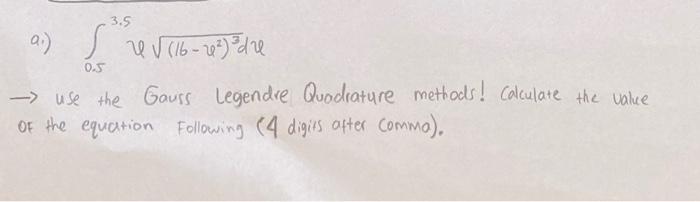 a.) ∫_{0.5}^{3.5} x √(16 - x²)³ dx
→ use the Gauss Legendre Quadrature methods! Calculate the value
OF the equation Following (4 digits after Comma).